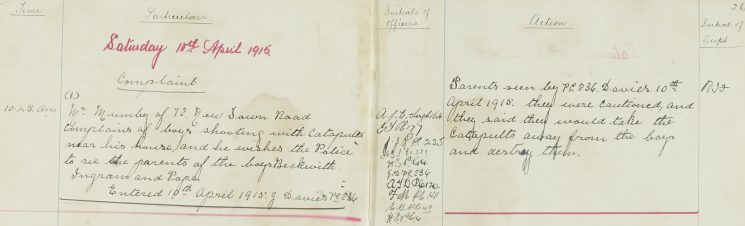 Time
Particulars
Initials of
Officers
Action
Initial of
Supt
26
Saturday 10th April 1915.
Complaint
(1)
10.45 am
Mr Mumby of 72 New Down Road
Complains of boys shooting with Catapults
near his house, and he wishes the Police
to see the parents of the boys Beckwith
Ingram and Pape.
Entered 10th April 1915. J. Davies PC236
PC 236
Parents seen by PC 236. Davies. 10th
April 1915. they were cautioned, and
they said they would take the
Catapults away from the boys
and destroy them.